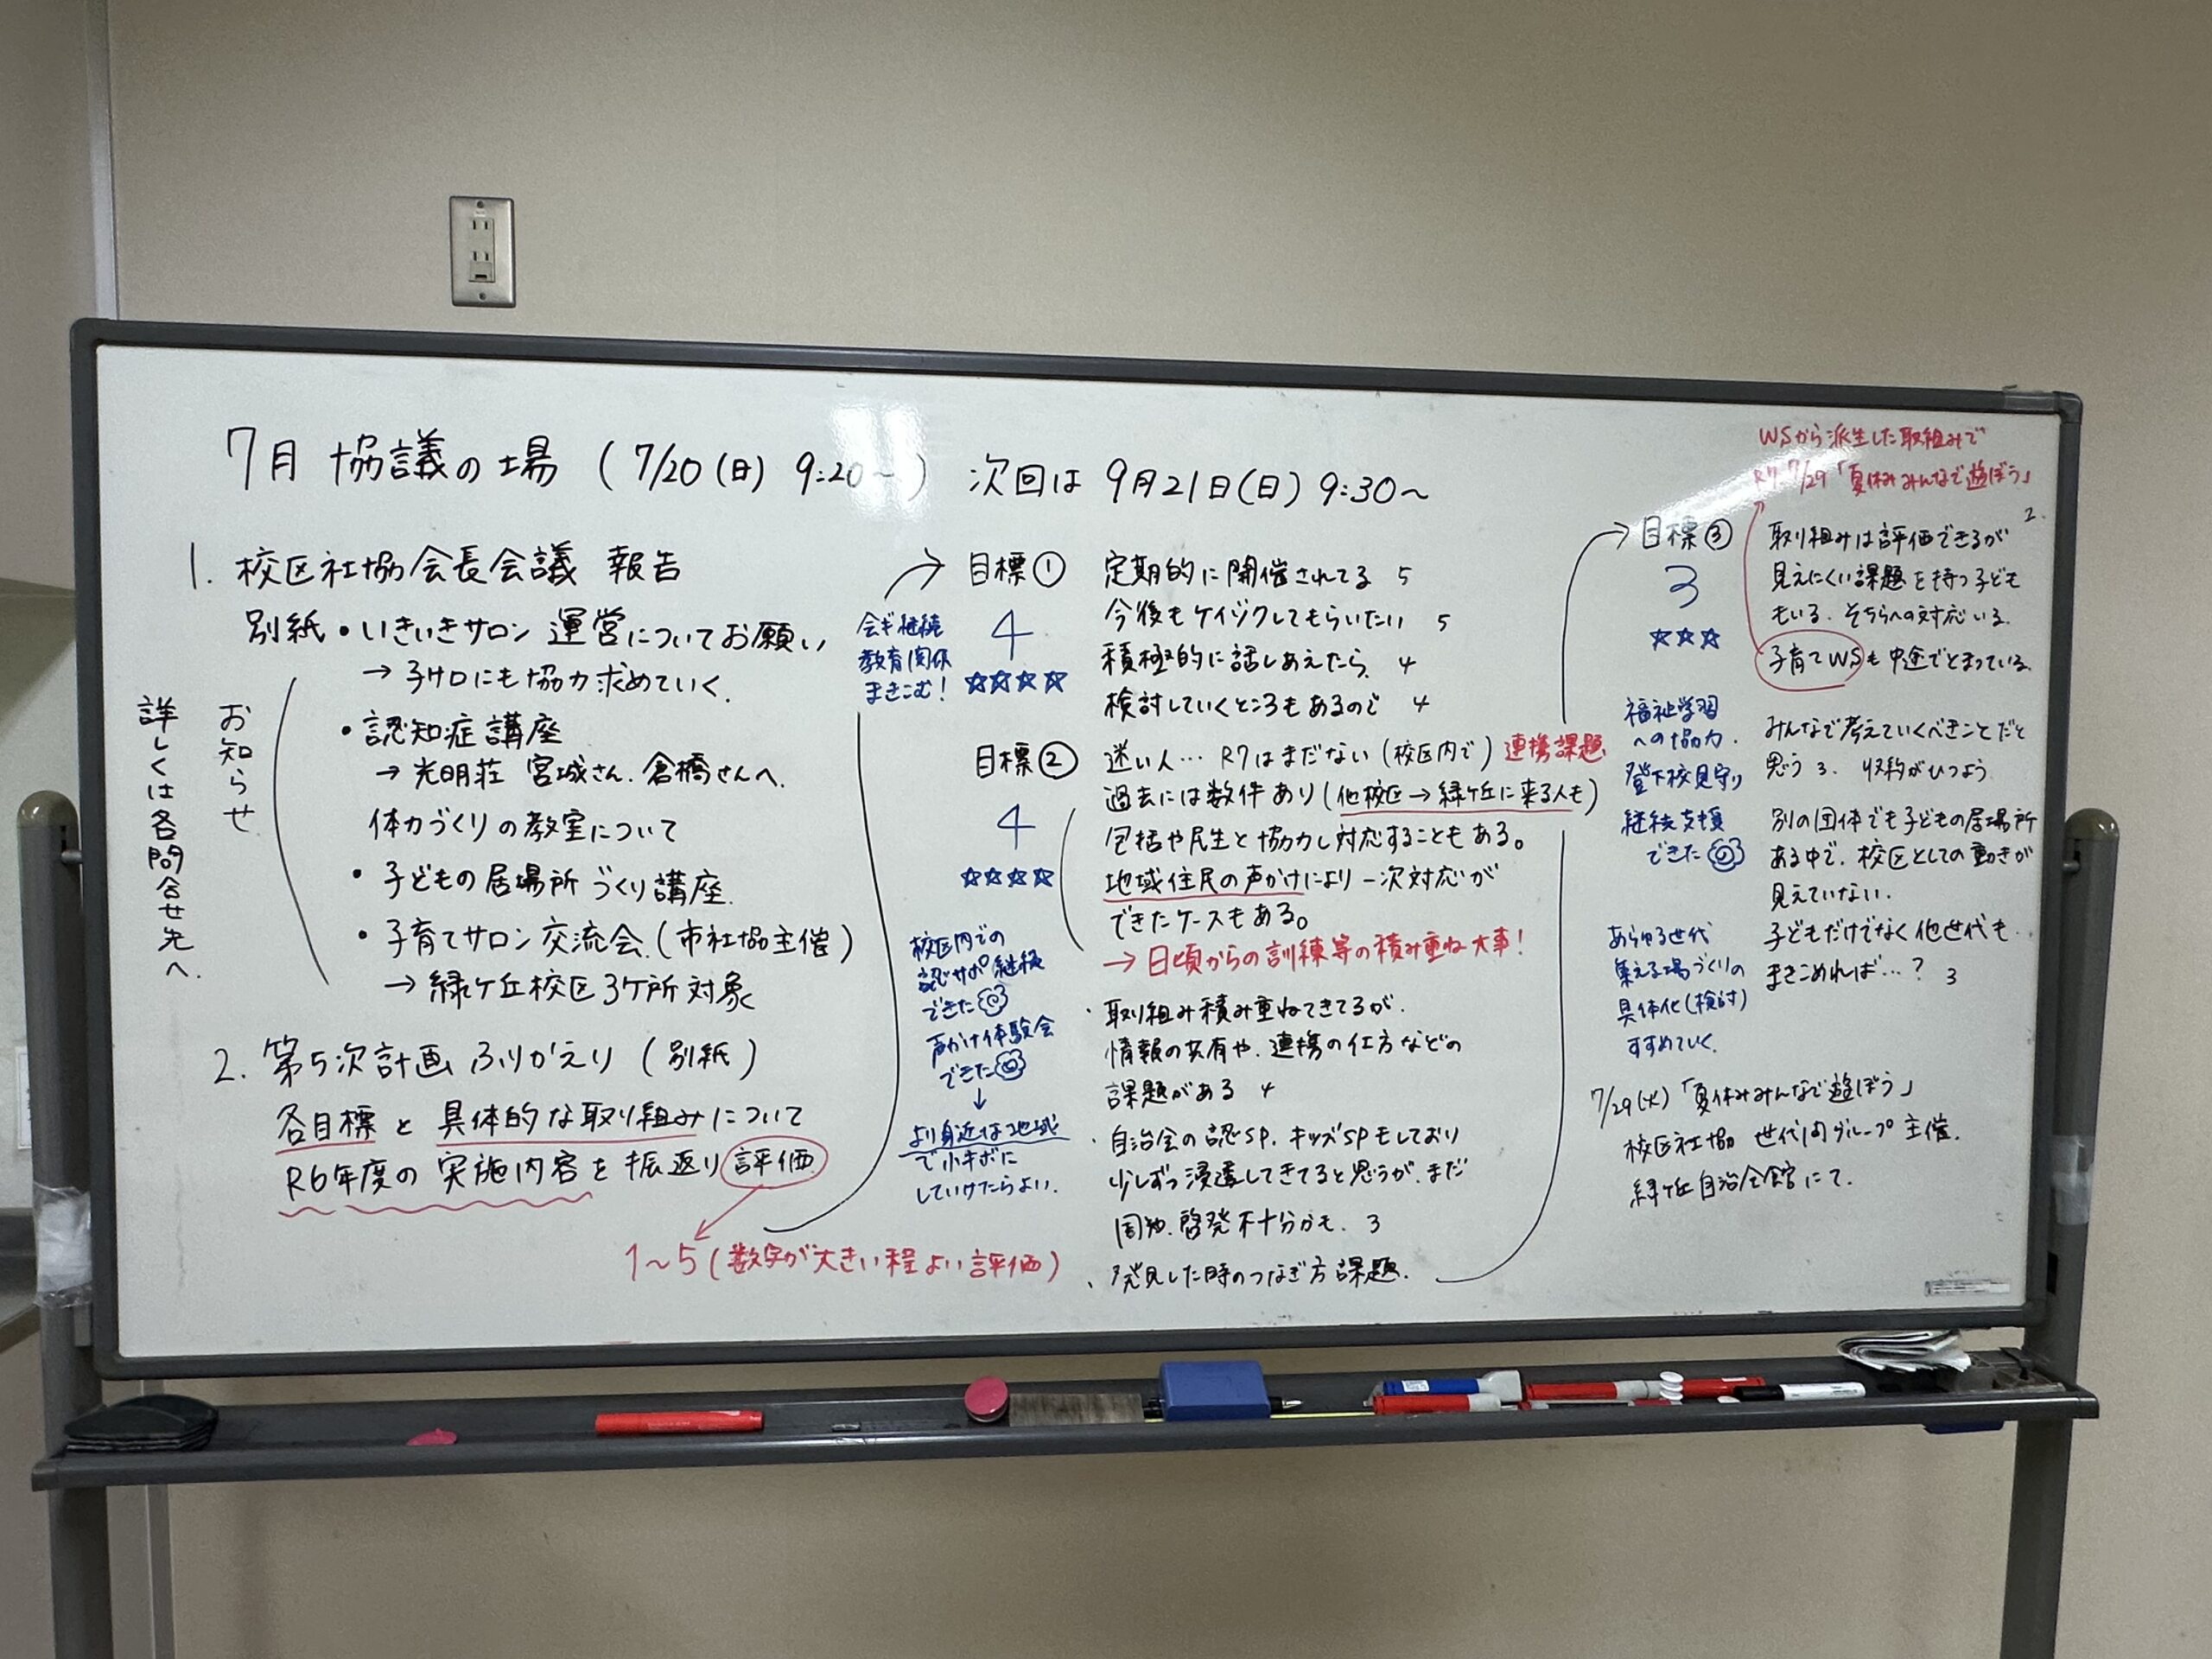 7月 協議の場 (7/20(日) 9:20〜) 次回は 9月21日(日) 9:30〜
1. 校区社協会長会議 報告
別紙・いきいきサロン 運営についてお願い
→ 子サロにも協力求めていく.
・認知症講座
→ 光明荘 宮城さん. 倉橋さんへ.
体力づくりの教室について
・子どもの居場所づくり講座.
・子育てサロン交流会 (市社協主催)
→ 緑ケ丘校区3ケ所対象
お知らせ
詳しくは各問合せ先へ.
2. 第5次計画 ふりかえり (別紙)
各目標と具体的な取り組みについて
R6年度の実施内容を振返り評価
1〜5 (数字が大きい程よい評価)
→ 目標①
4
☆☆☆☆
会ギ継続
教育関係
まきこむ!
定期的に開催されてる 5
今後もケイゾクしてもらいたい 5
積極的に話しあえたら. 4
検討していくところもあるので 4
目標②
4
☆☆☆☆
校区内での
認サポ継続
できた
声かけ体験会
できた
↓
より身近な地域
で小キボに
していけたらよい.
迷い人… R7はまだない (校区内で) 連携課題
過去には数件あり (他校区→緑ケ丘に来る人も)
包括や民生と協力し対応することもある。
地域住民の声かけにより一次対応が
できたケースもある。
→ 日頃からの訓練等の積み重ね大事!
・取り組み積み重ねてきてるが.
情報の共有や. 連携の仕方などの
課題がある 4
・自治会の認SP. キッズSPもしており
少しずつ浸透してきてると思うが. まだ
周知. 啓発不十分かも. 3
、発見した時のつなぎ方課題.
WSから派生した取組みで
R7. 7/29「夏休みみんなで遊ぼう」
→ 目標③
3
☆☆☆
福祉学習
への協力.
登下校見守り
継続支援
できた
あらゆる世代
集える場づくりの
具体化(検討)
すすめていく.
取り組みは評価できるが 2.
見えにくい課題を持つ子ども
もいる. そちらへの対応いる.
子育てWSも中途でとまっている.
みんなで考えていくべきことだと
思う 3. 収約がひつよう
別の団体でも子どもの居場所
ある中で. 校区としての動きが
見えていない.
子どもだけでなく他世代も.
まきこめれば…? 3
7/29(火)「夏休みみんなで遊ぼう」
校区社協 世代間グループ主催.
緑ケ丘自治会館にて.